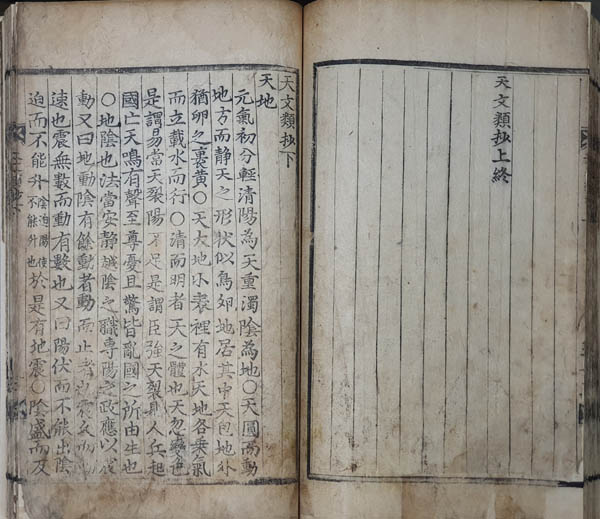 天文類抄上終
天文類抄下
天地
元氣初分輕清陽為天重濁陰為地○天圓而動
地方而靜天之形狀似鳥卵地居其中天包地外
猶卵之裹黃○天大地小表裡有水天地各乘氣
而立載水而行○清而明者天之體也天忽變色
是謂易常天裂陽不足是謂臣強天裂見人兵起
國亡天鳴有聲至尊憂且驚皆亂國之所由生也
○地陰也法當安靜越陰之職專陽之政應以震
動又曰地動陰有餘動者動而止者也震而
速也震無數而動有數也又曰陽伏而不能出陰
迫而不能升陰迫陽使不能升也於是有地震○陰盛而反